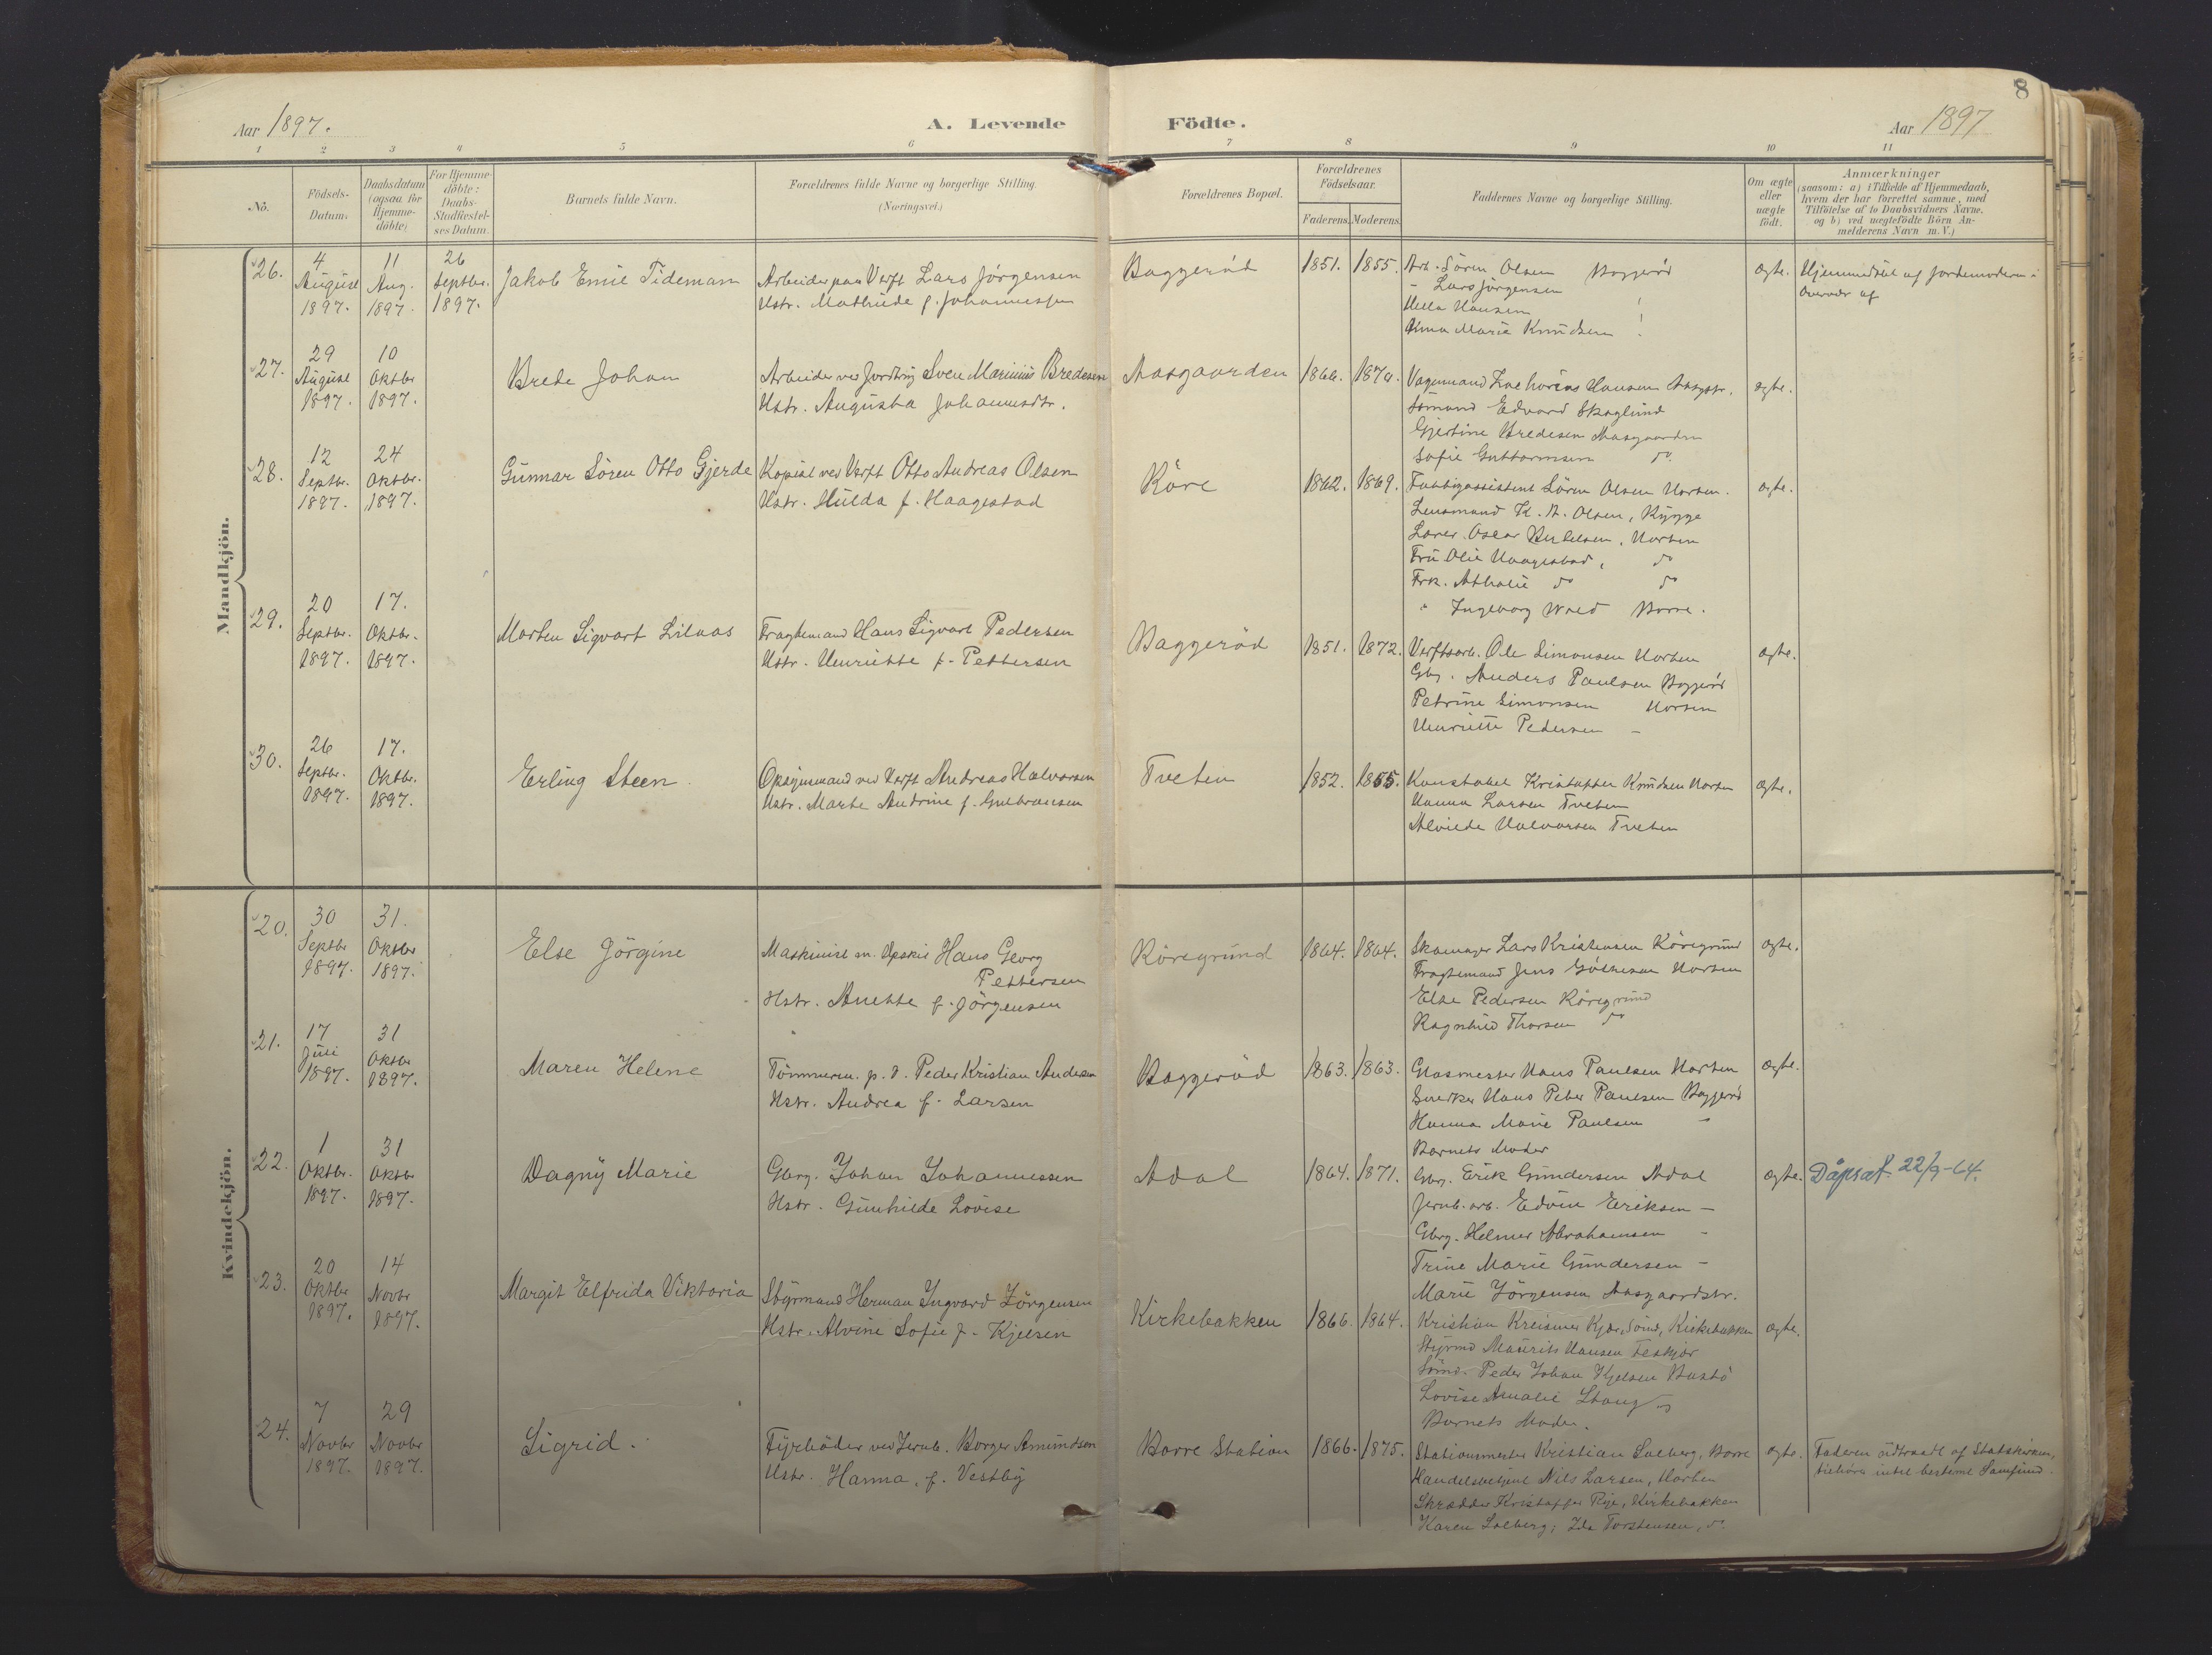 8
Aar 1897.
A. Levende Födte.
Aar 1897
1 2 3 4 5 6 7 8 9 10 11
No.
Födsels-Datum.
Daabsdatum (ogsaa for Hjemme-döbte)
For Hjemme-döbte: Daabs-Stadfæstel-ses Datum.
Barnets fulde Navn.
Forældrenes fulde Navne og borgerlige Stilling
(Næringsvei.)
Forældrenes Bopæl.
Forældrenes Födselsaar.
Faderens. Moderens.
Faddernes Navne og borgerlige Stilling.
Om ægte eller uægte födt.
Anmærkninger
(saasom: a) i Tilfælde af Hjemmedaab,
hvem der har forrettet samme, med
Tilföielse af to Daabsvidners Navne.
og b) ved uægtefödte Börn An-
melderens Navn m. V.)
Mandkjön.
26.
4 August 1897.
11 Aug. 1897.
26 Septbr. 1897.
Jakob Emil Tidemann
Arbeider paa Verft Lars Jörgensen
Hstr. Mathilde f. Johannessen
Baggeröd
1851. 1855.
Arb. Sören Olsen Baggeröd
- Lars Jörgensen
Hella Hansen
Anna Marie Knudsen
ægte.
Hjemmedöbt af Jordemoderen i
Overvær af
27.
29 August 1897.
10 Oktbr 1897.
Brede Johan
Arbeider ved Sven Marinius Bredesen
Hstr. Augusta Johannesdtr.
Aasgaarden
1866. 1870.
Vognmand Zacharias Hansen Aasgstr.
Sömand Edvard Skoglund
Gjertine Bredesen Aasgaarden
Sofie Guttormsen do.
ægte.
28.
12 Septbr. 1897.
24 Oktbr. 1897.
Gunnar Sören Otto Gjerde
Kopist ved Verft Otto Andreas Olsen
Hstr. Hulda f. Haagestad
Köre
1862. 1869.
Sören Olsen Horten.
Lensmand K. A. Olsen, Rygge
Lærer Oscar Horten
Fru Olie Haagestad, do
Frk. Athalie do do
" Ingeborg Wold Borre.
ægte.
29.
20 Septbr. 1897.
17. Oktbr. 1897.
Morten Sigvart Lilaas
Fragtemand Hans Sigvart Pedersen
Hstr. Henriette f. Pettersen
Baggeröd
1851. 1872.
Verftsarb. Ole Simonsen Horten
Gbr. Anders Paulsen Baggeröd
Petrine Simonsen Horten
Henriette Pedersen -
ægte.
30.
26 Septbr. 1897.
17. Oktbr. 1897.
Erling Steen
Opsynsmand ved Verft Andreas Halvorsen
Hstr. Marte Andrine f. Gulbransen
Tveten
1852. 1855.
Konstabel Kristoffer Knudsen Horten
Hanna Larsen Tveten
Alvilde Halvorsen Tveten
ægte.
Kvindekjön.
20.
30 Septbr 1897.
31. Oktbr 1897.
Else Jörgine
Maskinist Hans Georg
Pettersen
Hstr. Anette f. Jörgensen
Röregrund
1864. 1864.
Skomager Lars Kristensen Röregrund
Fragtemand Jens Horten
Else Pedersen Röregrund
Ragnhild Thorsen do
ægte.
21.
17 Juli 1897.
31 Oktbr 1897.
Maren Helene
Tömmerm. p. V. Peder Kristian Andersen
Hstr. Andrea f. Larsen
Baggeröd
1863. 1863.
Glasmester Hans Paulsen Horten
Snekker Hans Peter Paulsen Baggeröd
Hanna Marie Paulsen -
Barnets Moder
ægte.
22.
1 Oktbr. 1897.
31 Oktbr 1897.
Dagny Marie
Gbrg. Johan Johannessen
Hstr. Gunhilde Lovise
Adal
1864. 1871.
Gbrg. Erik Gundersen Adal
Jernb. arb. Edvin Eriksen -
Gbrg. Helmer Abrahamsen -
Trine Marie Gundersen -
Marie Jörgensen Aasgaardstr.
ægte.
Dåpsat. 22/9-64.
23.
20 Oktbr 1897.
14 Novbr 1897.
Margit Elfrida Viktoria
Styrmand Herman Ingvard Jörgensen
Hstr. Alvine Sofie f. Kjelsen
Kirkebakken
1866. 1864.
Kristian Kirkebakken
Styrmd Maurits Hansen Feskjær
Sömd. Peder Johan Kjelsen Bastö
Lovise Amalie Stang -
Barnets Moder.
ægte.
24.
7 Novbr 1897.
29 Novbr 1897.
Sigrid.
Fyrböder ved Jernb. Borger Amundsen
Hstr. Hanna, f. Vestby
Borre Station
1866. 1875.
Stationsmester Kristian Solberg, Borre
Handelsbetjent Nils Larsen, Horten
Skrædder Kristoffer Rye, Kirkebakken
Karen Solberg, Ida Torstensen, do.
ægte.
Faderen udtraadt af Statskirken,
tilhörer intet bestemt Samfund.